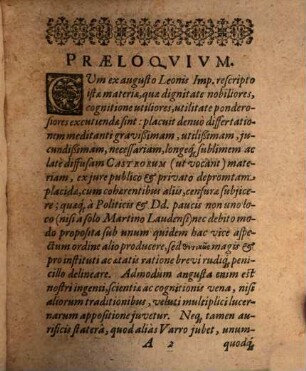 PRÆLOQVIVM.
CUm ex augusto Leonis Imp. rescripto
istæ materiæ, quæ dignitate nobiliores,
cognitione utiliores, utilitate pondero-
siores excutiendæ sint: placuit denuò dissertatio-
nem meditanti gravißimam, utilißimam, ju-
cundißimam, necessariam, longeq́; sublimem ac
latè diffusam CASTRORUM (ut vocant) mate-
riam, ex jure publico & privato depromtam,
placida, cum cohærentibus aliis, censuræ subjice-
re; quaq́; à Politicis & Dd. paucis non uno lo-
co (nisi à solo Martino Laudensi) nec debito mo-
do proposita sub unum quidem hac vice aspe-
ctum ordine alio producere, sed magis &
pro instituti ac ætatis ratione brevi rudiq́; peni-
cillo delineare. Admodum angusta enim est
nostri ingenii, scientiæ ac cognitionis vena, nisi
aliorum traditionibus, veluti multiplici lucer-
narum appositione juvetur. Neq́; tamen au-
rificis staterâ, quod aliàs Varro jubet, unum-
A 2 quodq́;